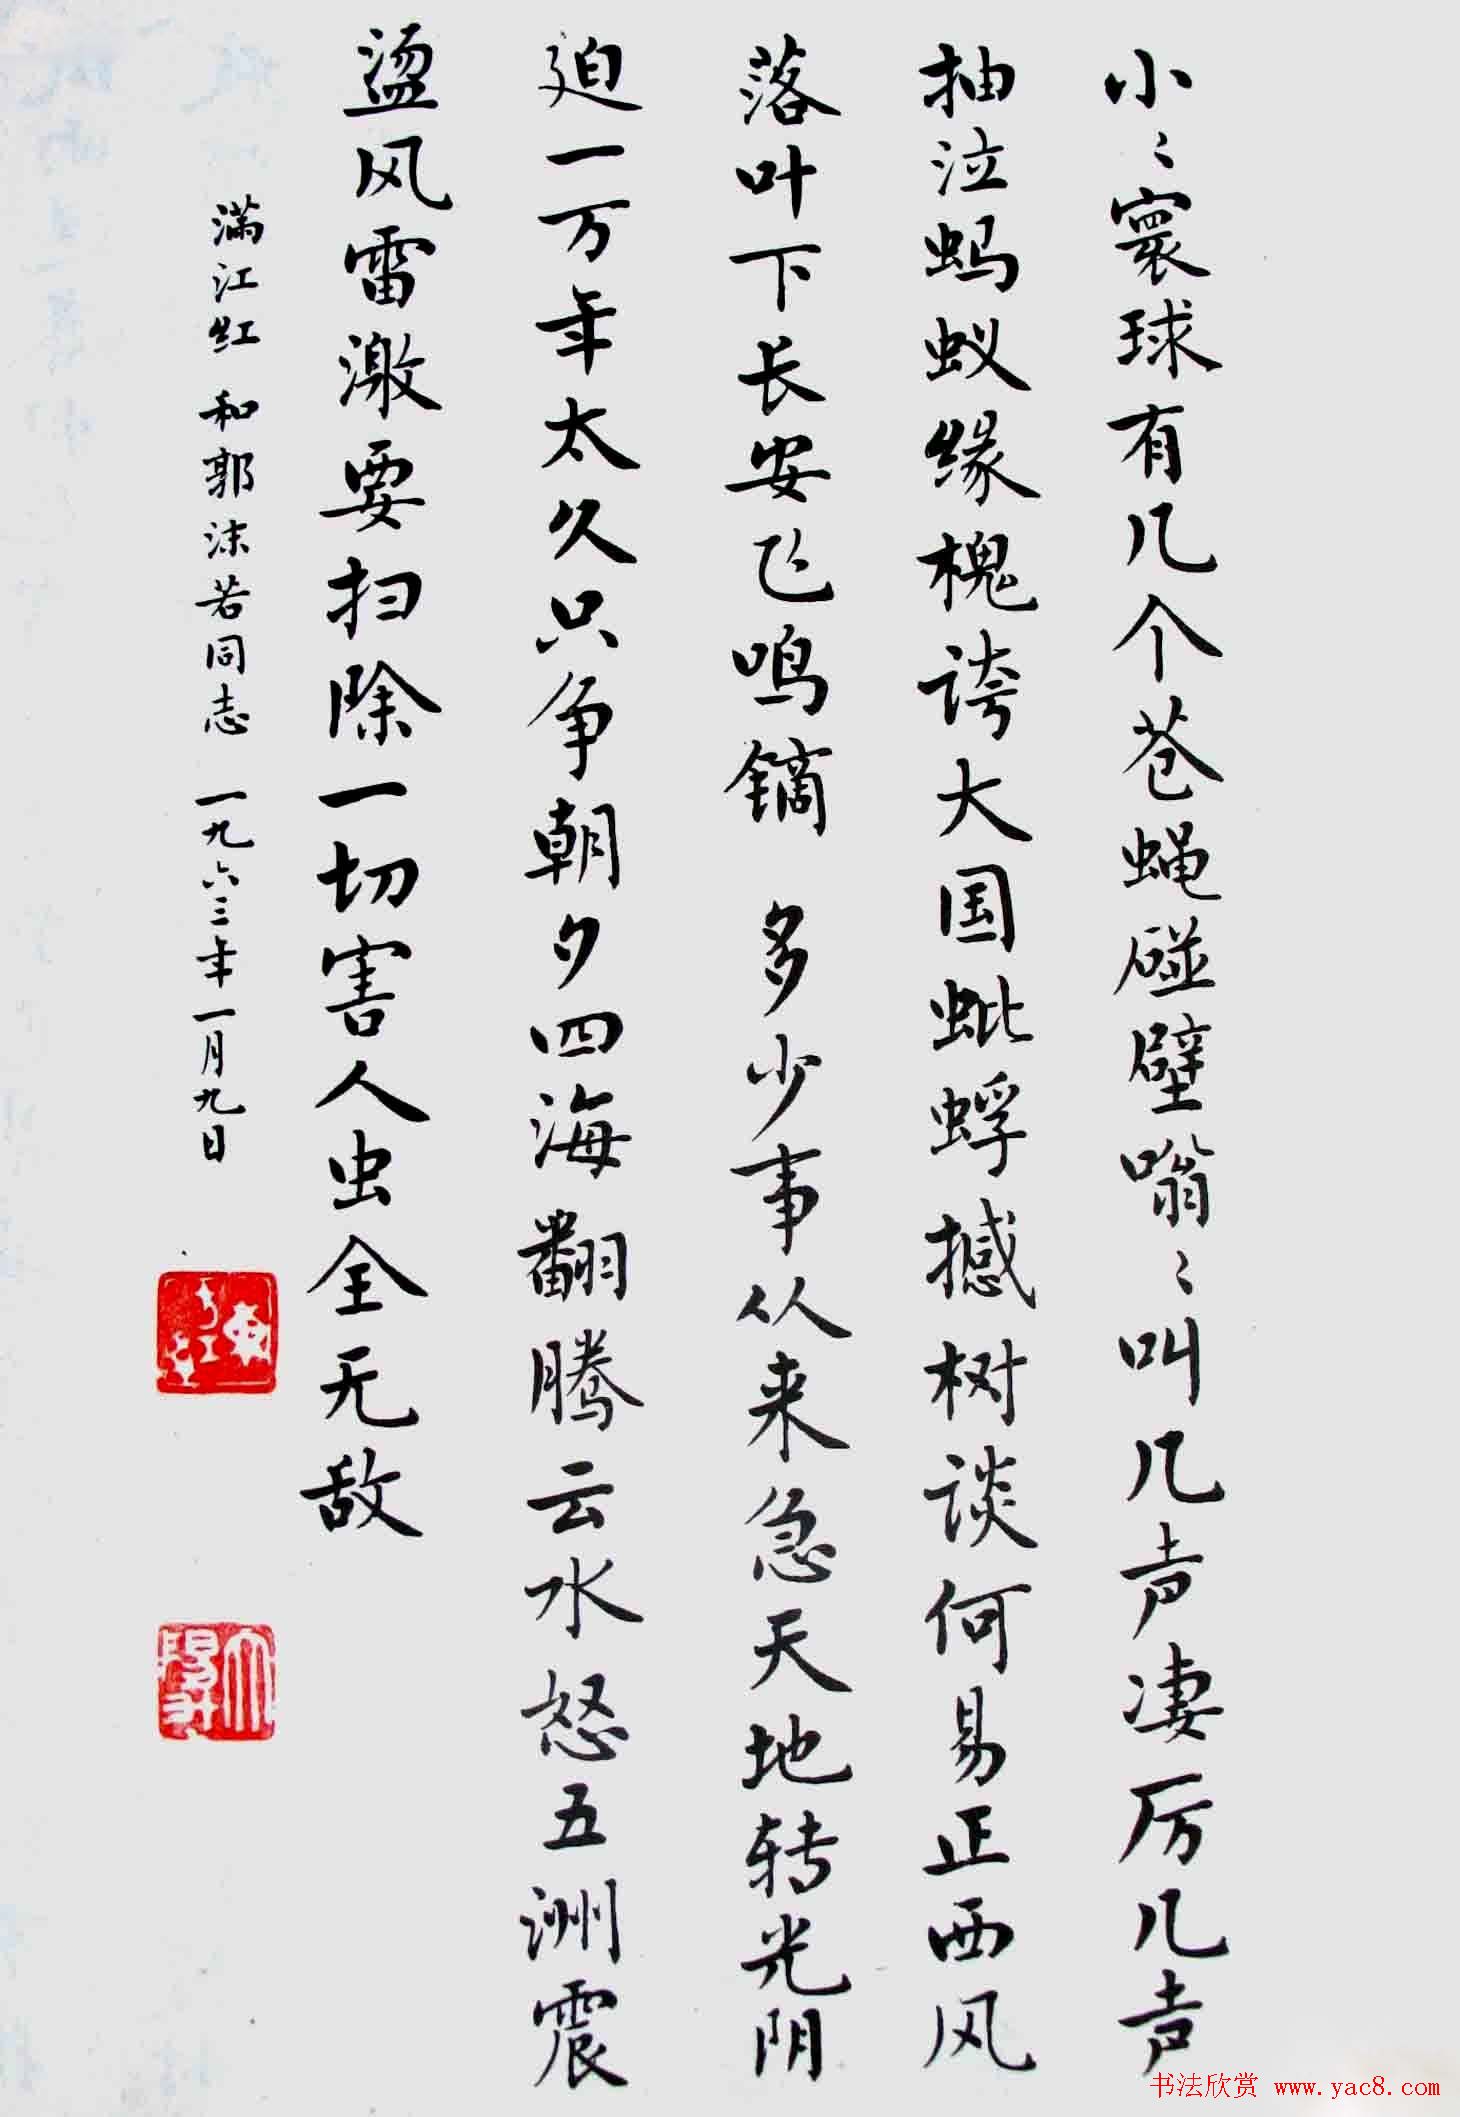 小〻寰球有几个苍蝇碰壁嗡〻叫几声凄厉几声
抽泣蚂蚁缘槐誇大国蚍蜉撼树谈何易正西风
落叶下长安飞鸣镝 多少事从来急天地转光阴
迫一万年太久只争朝夕四海翻腾云水怒五洲震
盪风雷激要扫除一切害人虫全无敌
满江红 和郭沫若同志 一九六三年一月九日
书法欣赏 www.yac8.com